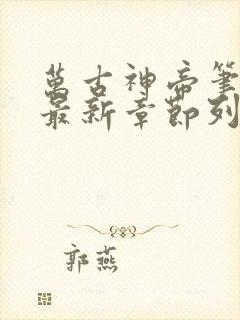 萬古神帝筆
最新章節列
郭燕